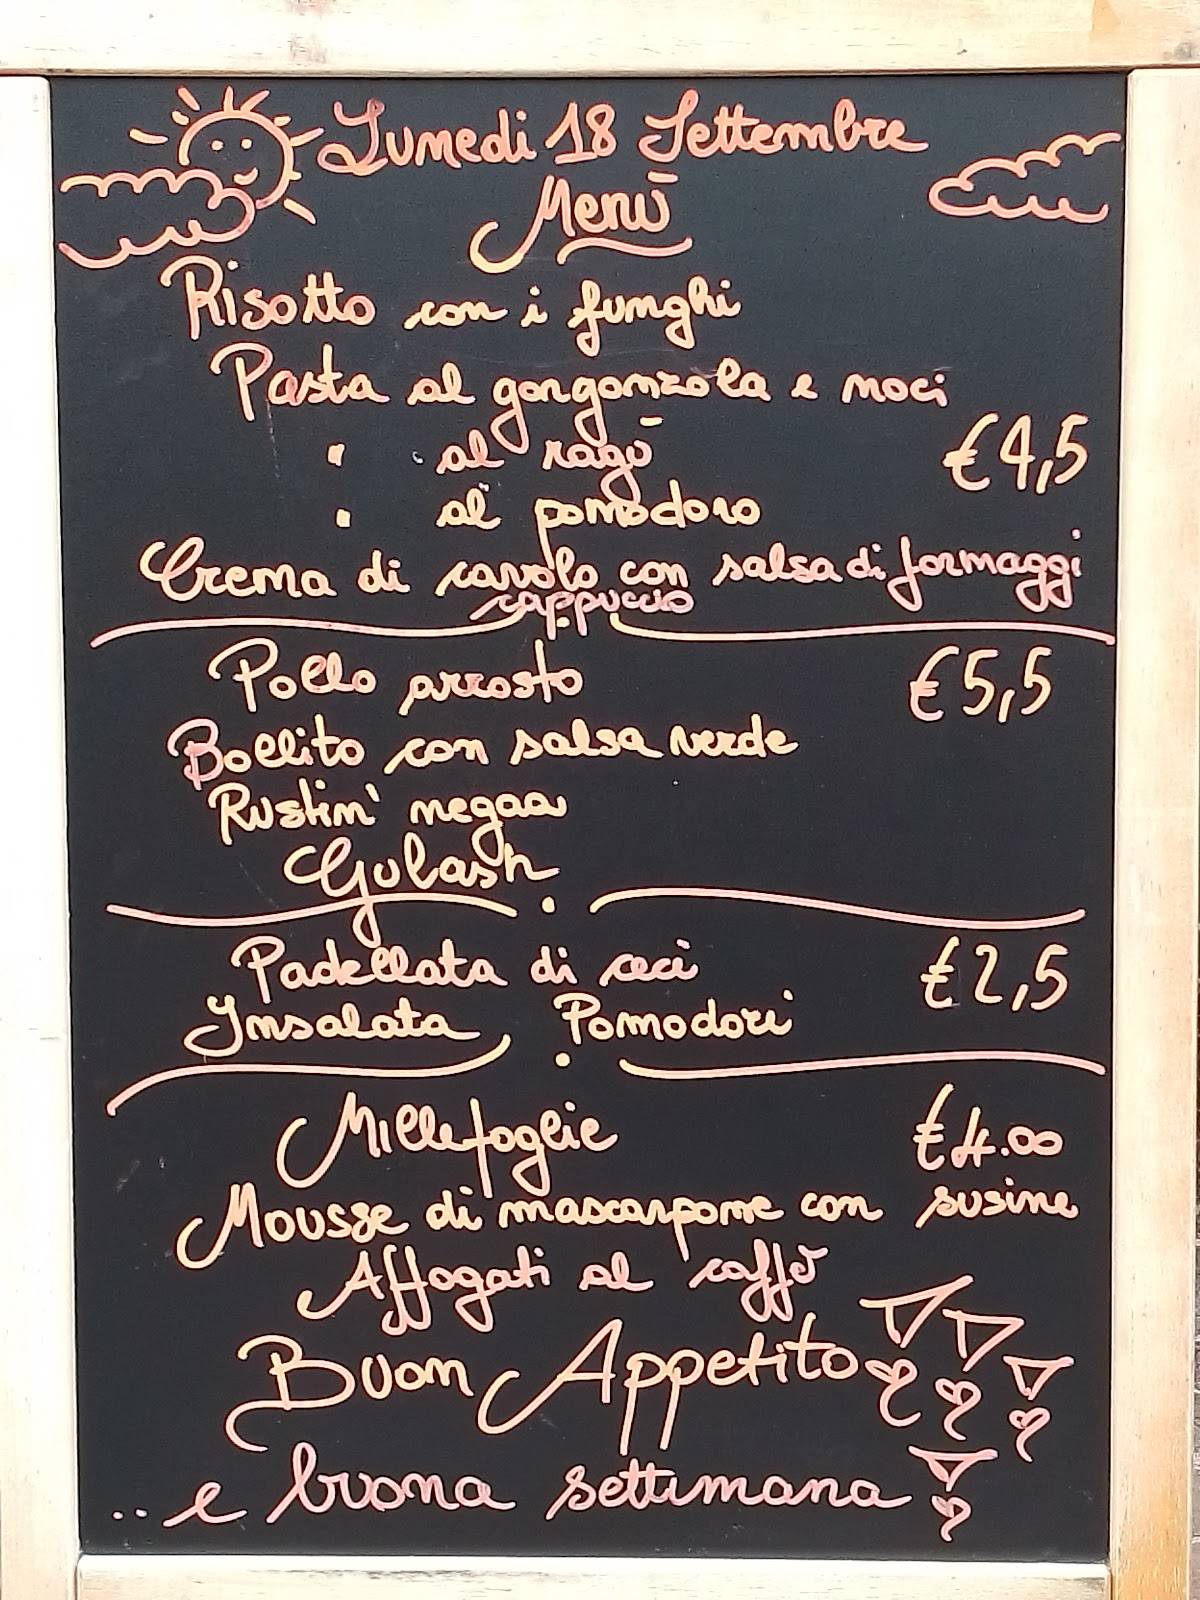 Lunedì 18 Settembre
Menù
Risotto con i funghi
Pasta al gorgonzola e noci
" al ragù €4,5
" al pomodoro
Crema di cavolo con salsa di formaggi
cappuccio
Pollo arrosto €5,5
Bollito con salsa verde
Rustin' negaa
Gulash
Padellata di ceci €2,5
Insalata Pomodori
Millefoglie €4.00
Mousse di mascarpone con susine
Affogati al caffè
Buon Appetito
..e buona settimana